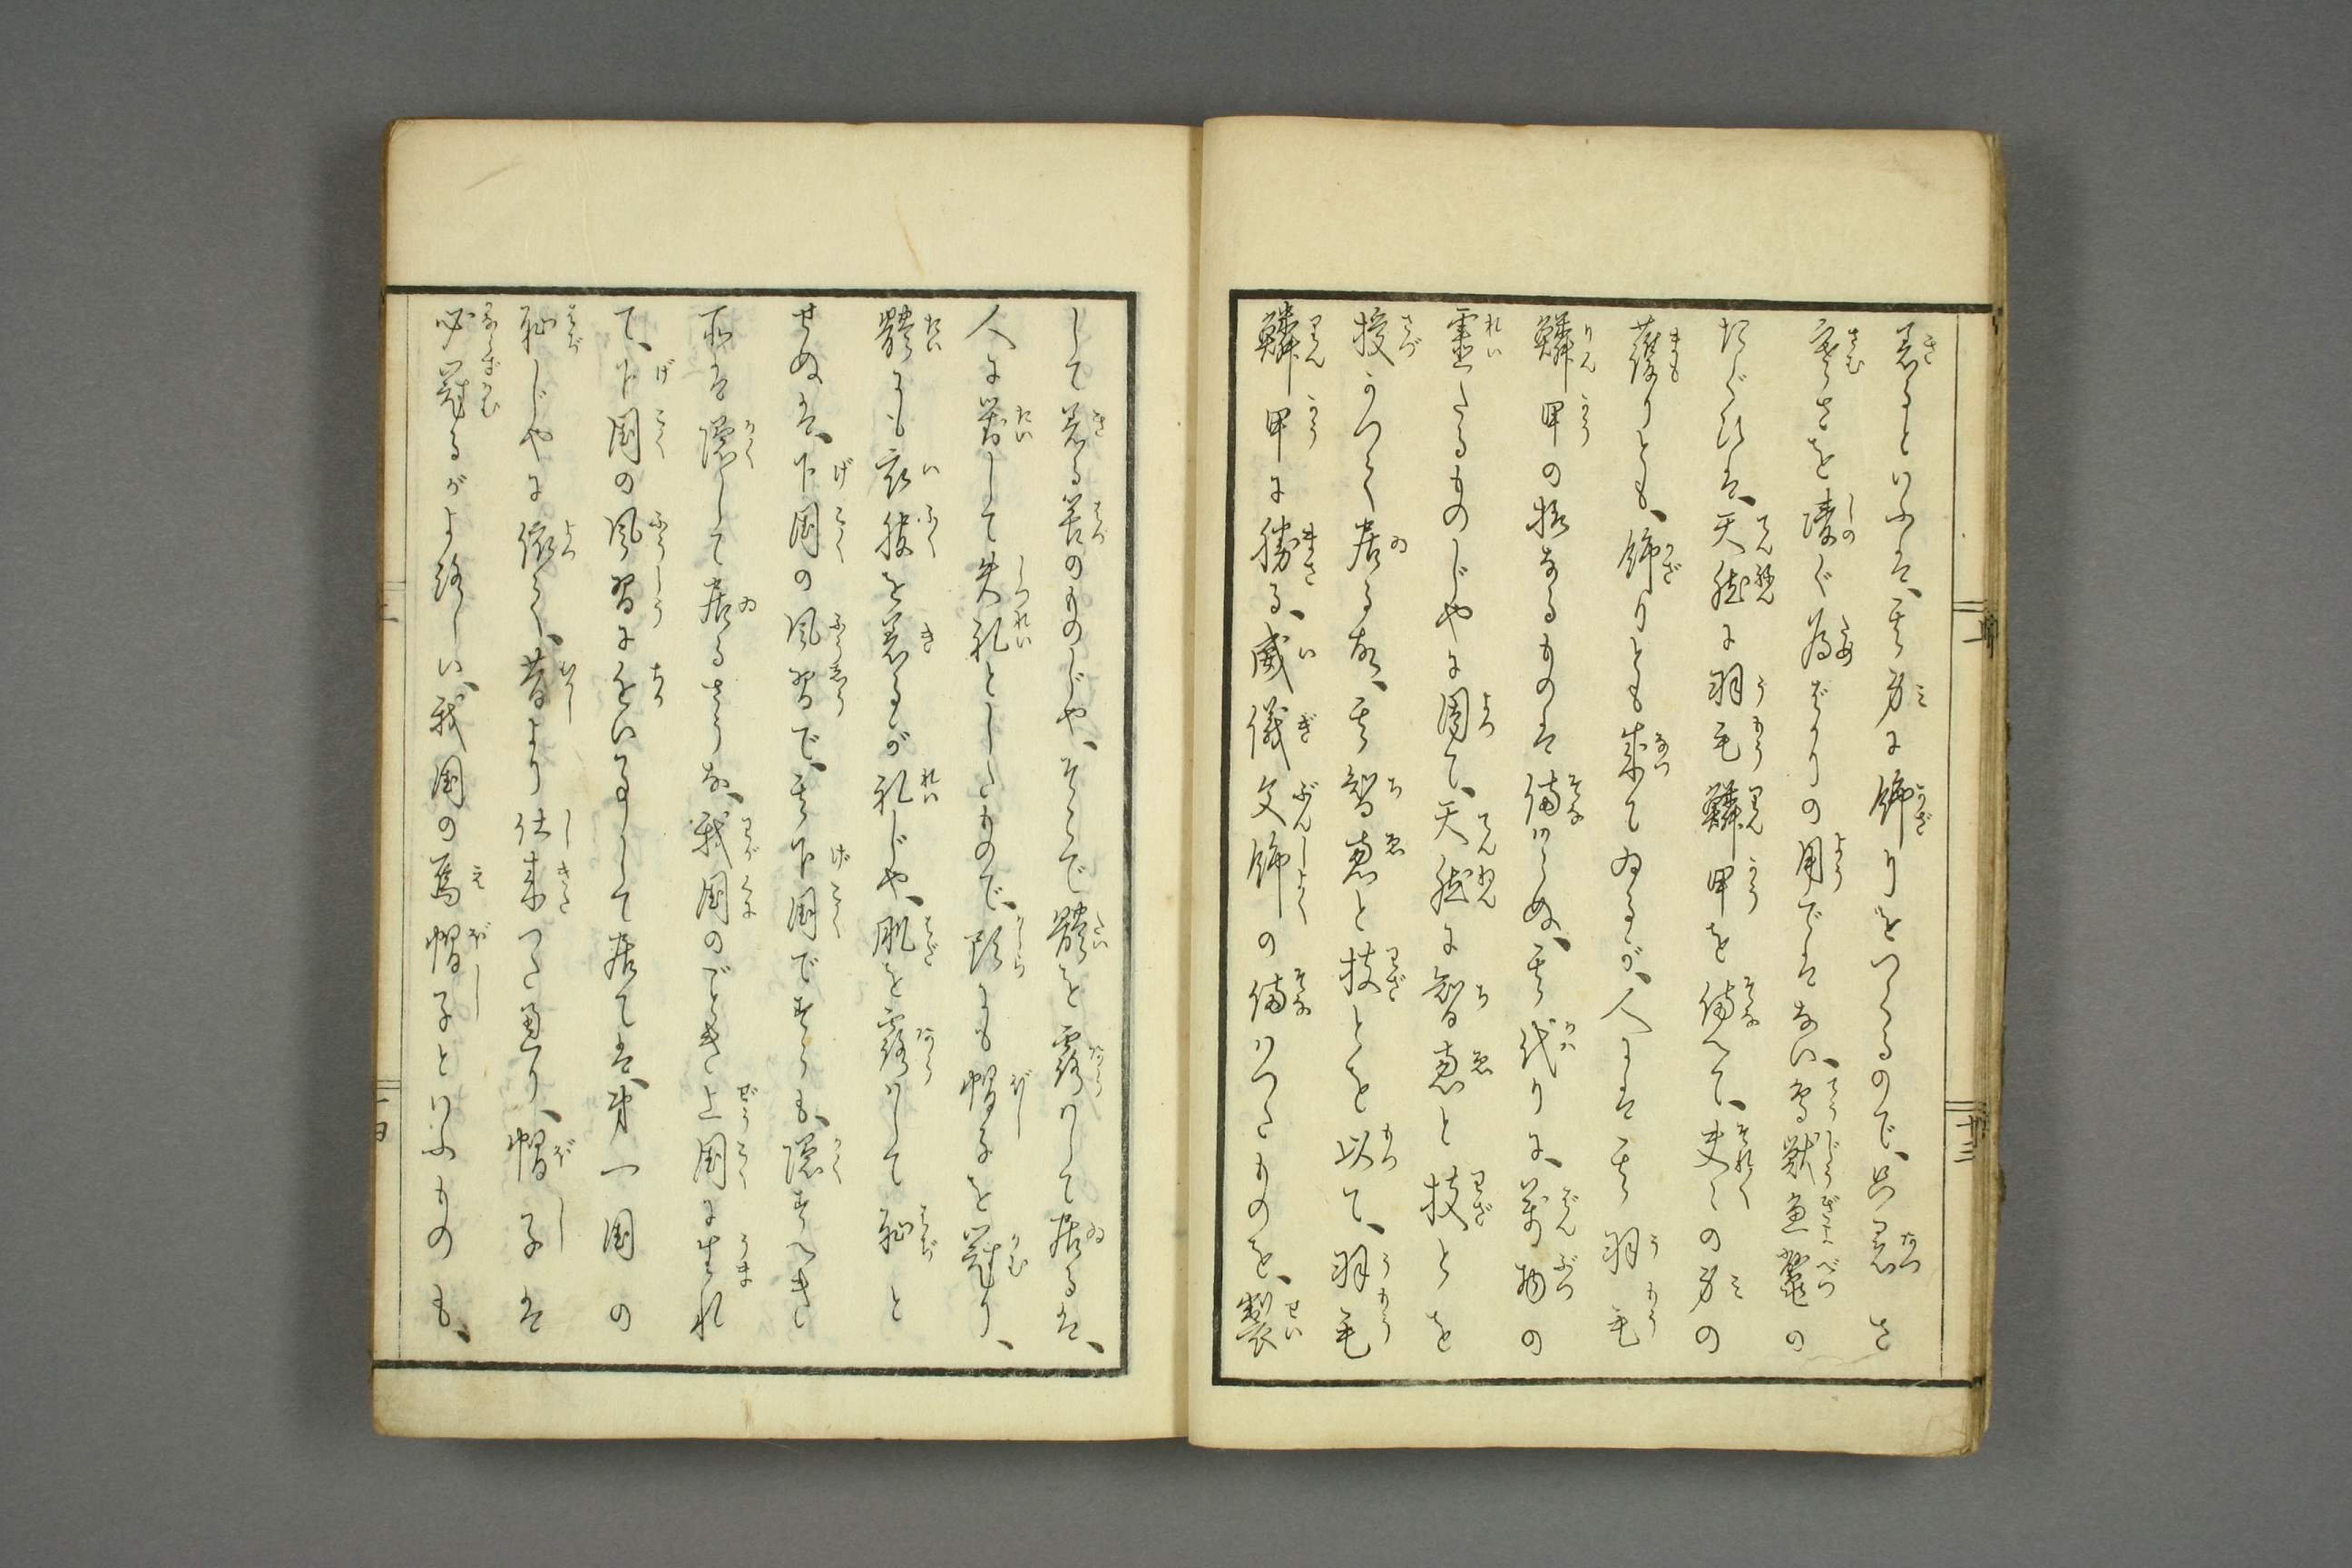 着るといふは、其身に飾りをつくるので、只暑さ
寒さを凌ぐ為ばかりの用ではない、鳥獣魚鼈の
たぐひは、天然に羽毛鱗甲を備へて、夫〻の身の
護りとも、飾りとも成てゐるが、人には其羽毛
鱗甲の様なるものは備はらぬ、其代りに、萬物の
霊たるものじやに因て、天然に智恵と技とを
授かつて居る故、其智恵と技とを以て、羽毛
鱗甲に勝る、威儀文飾の備はつたものを、製
して着る筈のものじや、そこで體を露はして居るは、
人に對して失礼としたもので、頭にも帽子を冠り、
體にも衣服を着るが礼じや、肌を露はして恥と
せぬは、下国の風習で、其下国ですらも、隠すべき
所は隠して居るさうな、我国のごとき上国に生れ
て、下国の風習に近い事して居ては、第一国の
恥じやに依て、昔より仕来つた通り、帽子は
必冠るがよ路しい、我国の烏帽子といふものも、
二
十三